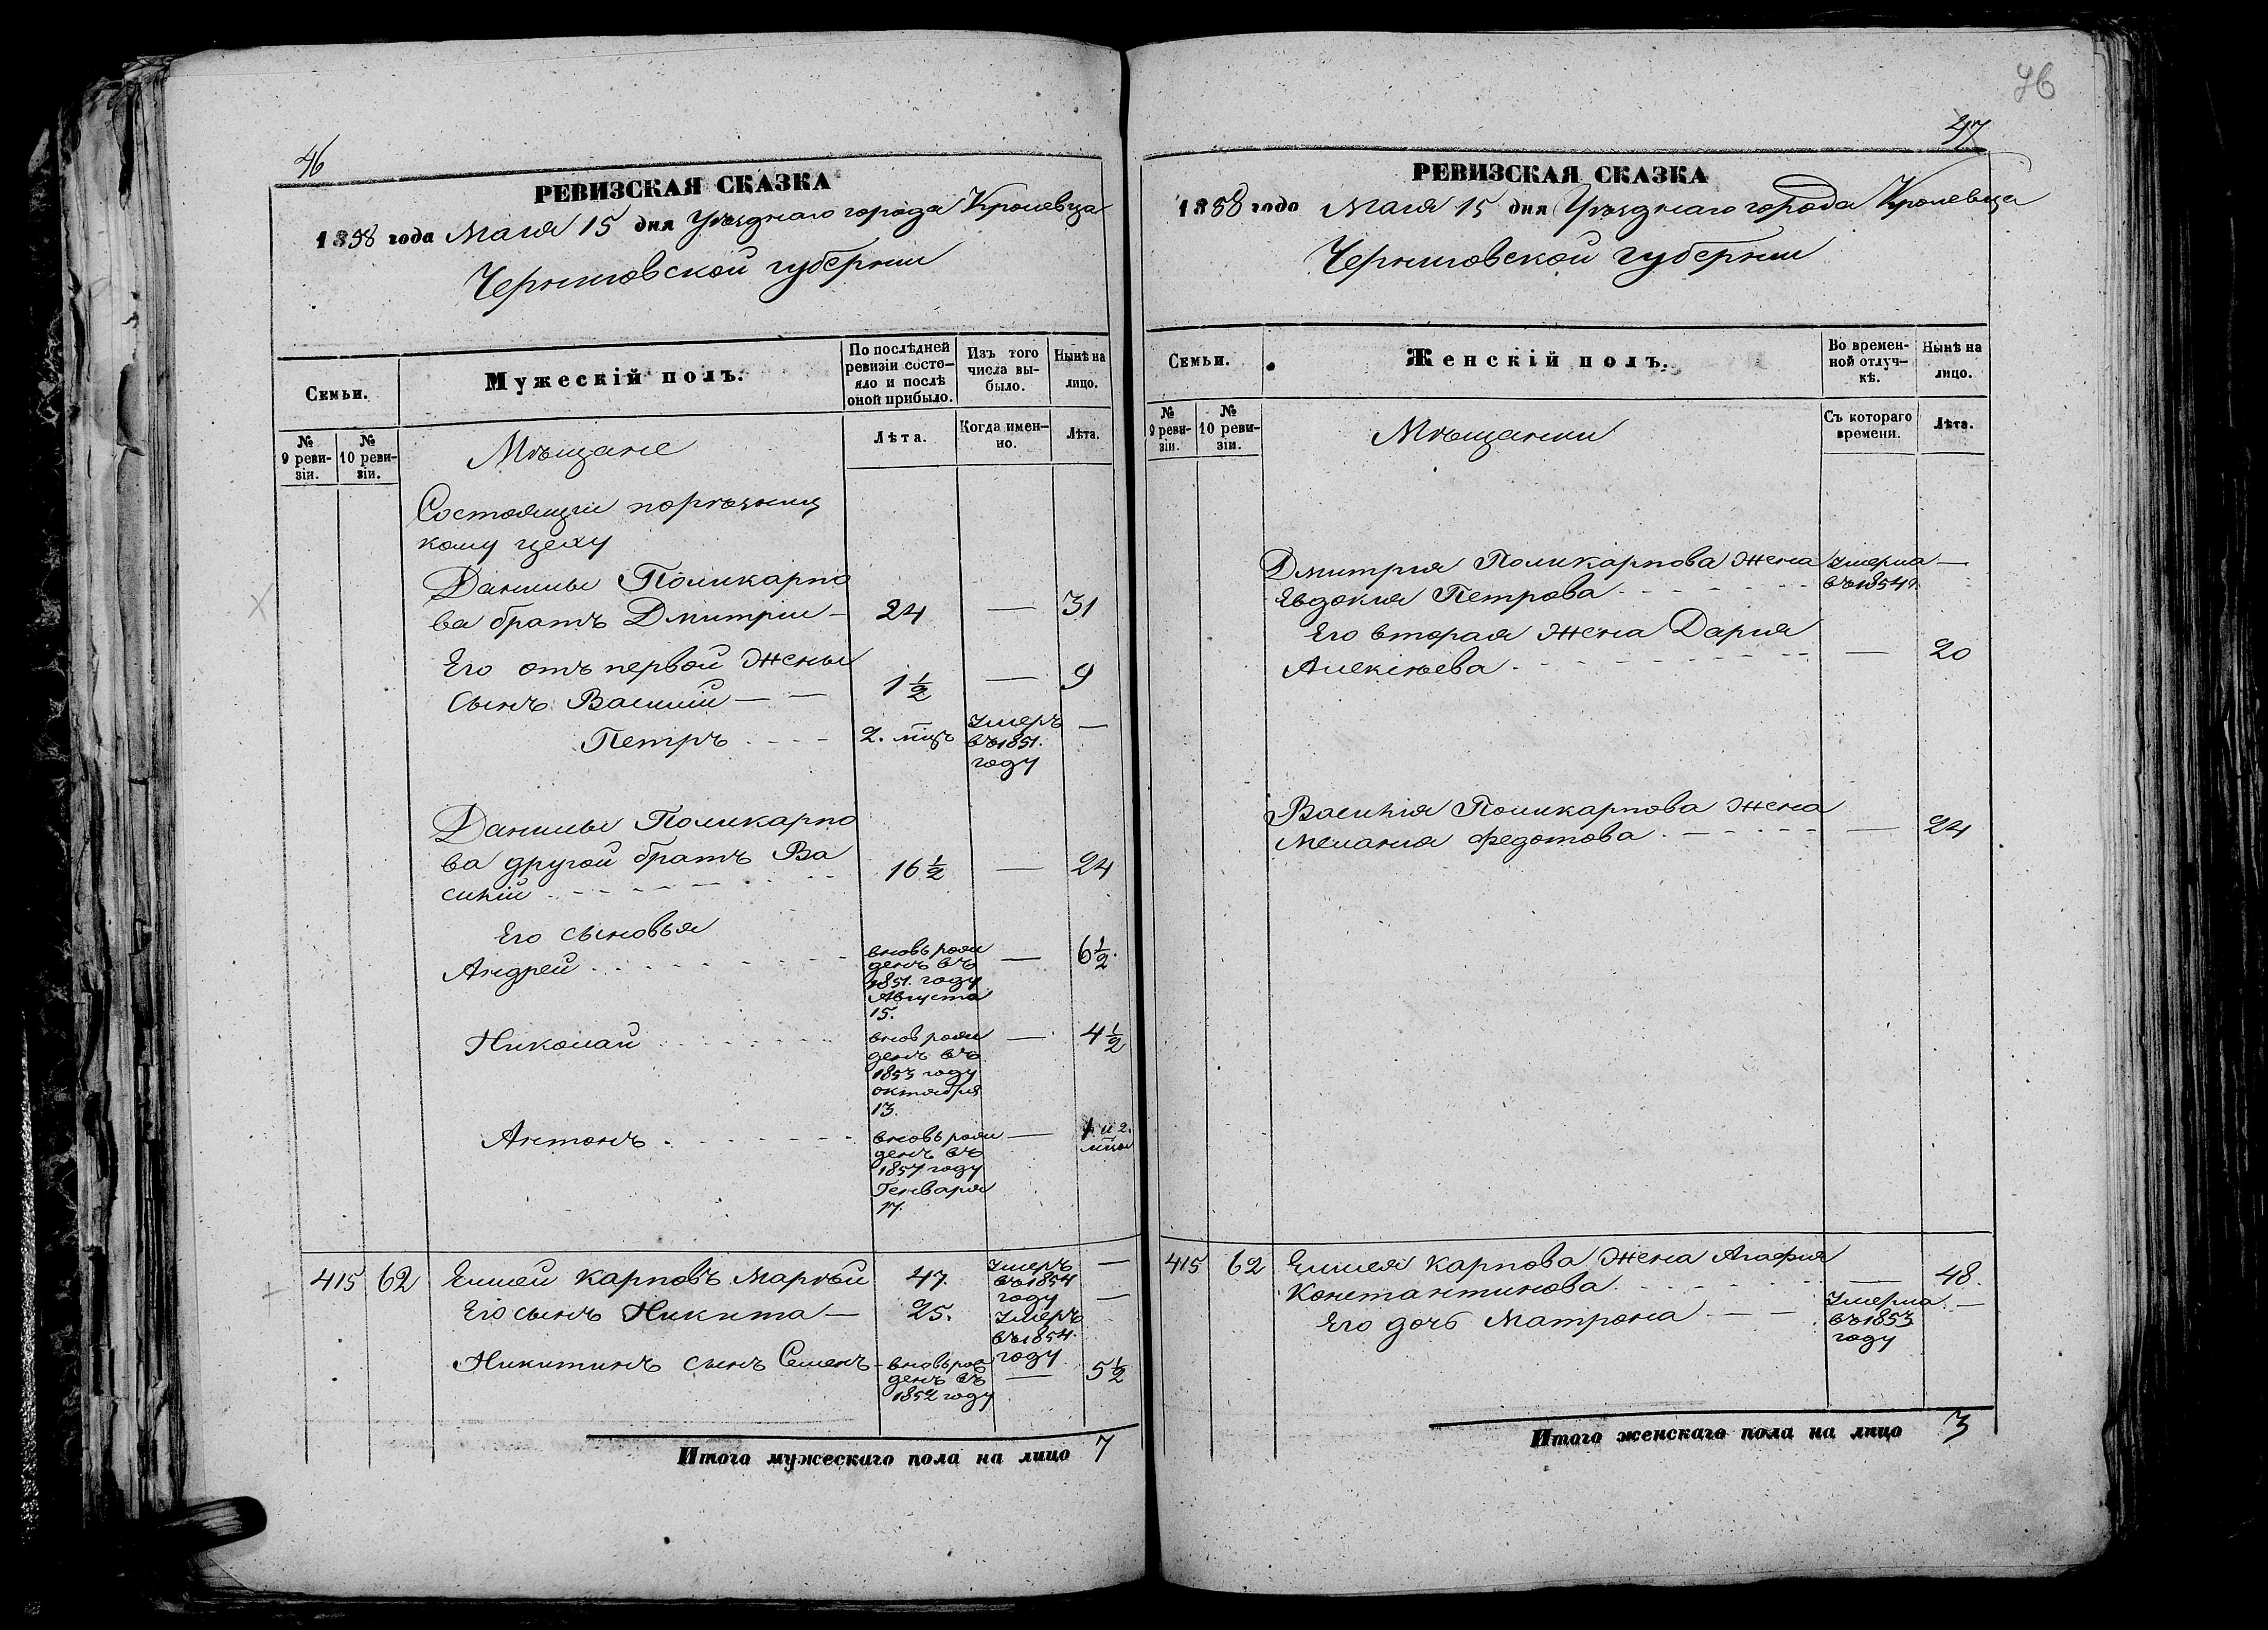 46
РЕВИЗСКАЯ СКАЗКА
1858 года Маія 15 дня Уѣзднаго города Кролевца
Черниговской губерніи
Семьи.
Мужескій полъ.
По послѣдней ревизіи состояло и послѣ оной прибыло.
Изъ того числа выбыло.
Нынѣ на лицо.
№ 9 ревизіи.
№ 10 ревизіи.
Мѣщане
Лѣта.
Когда именно.
Лѣта.
Состоящіи
кому цеху
Данилы Поликарпо
ва братъ Дмитрій — 24 — 31
Его отъ первой жены
сынъ Василій — — 1½ — 9
Петръ . . . . 2. мцъ Умеръ въ 1851. году —
Данилы Поликарпо
ва другой братъ Ва
силій . . . . 16½ — 24
Его сыновья
Андрей . . . . вновь рожденъ въ 1851. году Августа 15. — 6½.
Николай . . . . вновь рожденъ въ 1853 году октября 13. — 4½
Антонъ . . . . вновь рожденъ въ 1857 году Генваря 17. — 1 и 2. мца
415 62 Елисей Карповъ Маргѣй 47. Умеръ въ 1854 году —
Его сынъ Никита — 25. Умеръ въ 1854. году —
Никитинъ сынъ Семенъ - вновь рожденъ въ 1852 году — 5½
Итого мужескаго пола на лицо 7
46
47
РЕВИЗСКАЯ СКАЗКА
1858 года Маія 15 дня Уѣзднаго города Кролевца
Черниговской губерніи
Семьи.
Женскій полъ.
Во временной отлучкѣ.
Нынѣ на лицо.
№ 9 ревизіи.
№ 10 ревизіи.
Мѣщанки
Съ котораго времени.
Лѣта.
Дмитрія Поликарпова жена
Евдокія Петрова . . . . Умерла въ 1854 г. —
Его вторая жена Дарія
Алексѣева . . . . — 20
Василія Поликарпова жена
Меланія Федотова . . . . — 24
415 62 Елисея Карпова жена Агафія
Константинова . . . . — 48.
Его дочь Матрона — — Умерла въ 1853 году —
Итого женскаго пола на лицо 3